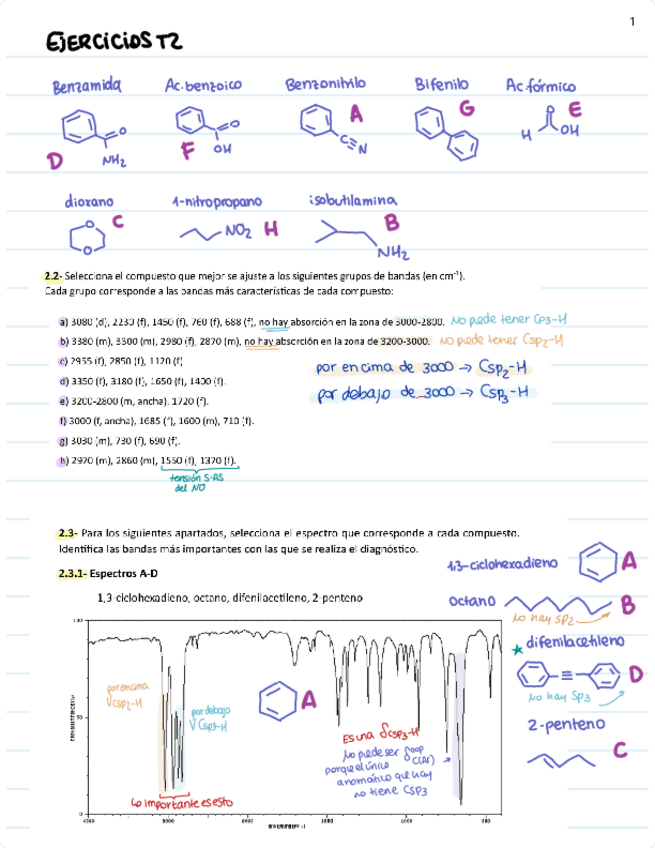 1
EJERCICIOS T2
Benzamida Ac. benzoico Benzonitrilo Bifenilo Ac. fórmico
D O NH2 F O OH A C≡N G E H O OH
dioxano 1-nitropropano isobutilamina
C O O NO2 H B NH2
2.2- Selecciona el compuesto que mejor se ajuste a los siguientes grupos de bandas (en cm-1).
Cada grupo corresponde a las bandas más características de cada compuesto:
a) 3080 (d), 2230 (f), 1450 (f), 760 (f), 688 (f), no hay absorción en la zona de 3000-2800. No puede tener Cp3-H
b) 3380 (m), 3300 (m), 2980 (f), 2870 (m), no hay absorción en la zona de 3200-3000. No puede tener Csp2-H
c) 2955 (f), 2850 (f), 1120 (f)
por encima de 3000 → Csp2-H
d) 3350 (f), 3180 (f), 1650 (f), 1400 (f).
e) 3200-2800 (m, ancha), 1720 (f).
por debajo de 3000 → Csp3-H
f) 3000 (f, ancha), 1685 (f), 1600 (m), 710 (f).
g) 3030 (m), 730 (f), 690 (f).
h) 2970 (m), 2860 (m), 1550 (f), 1370 (f).
tensión S-AS
del NO
2.3- Para los siguientes apartados, selecciona el espectro que corresponde a cada compuesto.
Identifica las bandas más importantes con las que se realiza el diagnóstico.
1,3-ciclohexadieno A
2.3.1- Espectros A-D
1,3-ciclohexadieno, octano, difenilacetileno, 2-penteno
octano B
No hay SP2
difenilacetileno
D
No hay Sp3
2-penteno
C
por encima
√Csp2-H
por debajo
√Csp3-H
A
Es una δCsp3-H
No puede ser δoop
C(Ar)
porque el único
aromático que hay
no tiene CSP3
Lo importante es esto